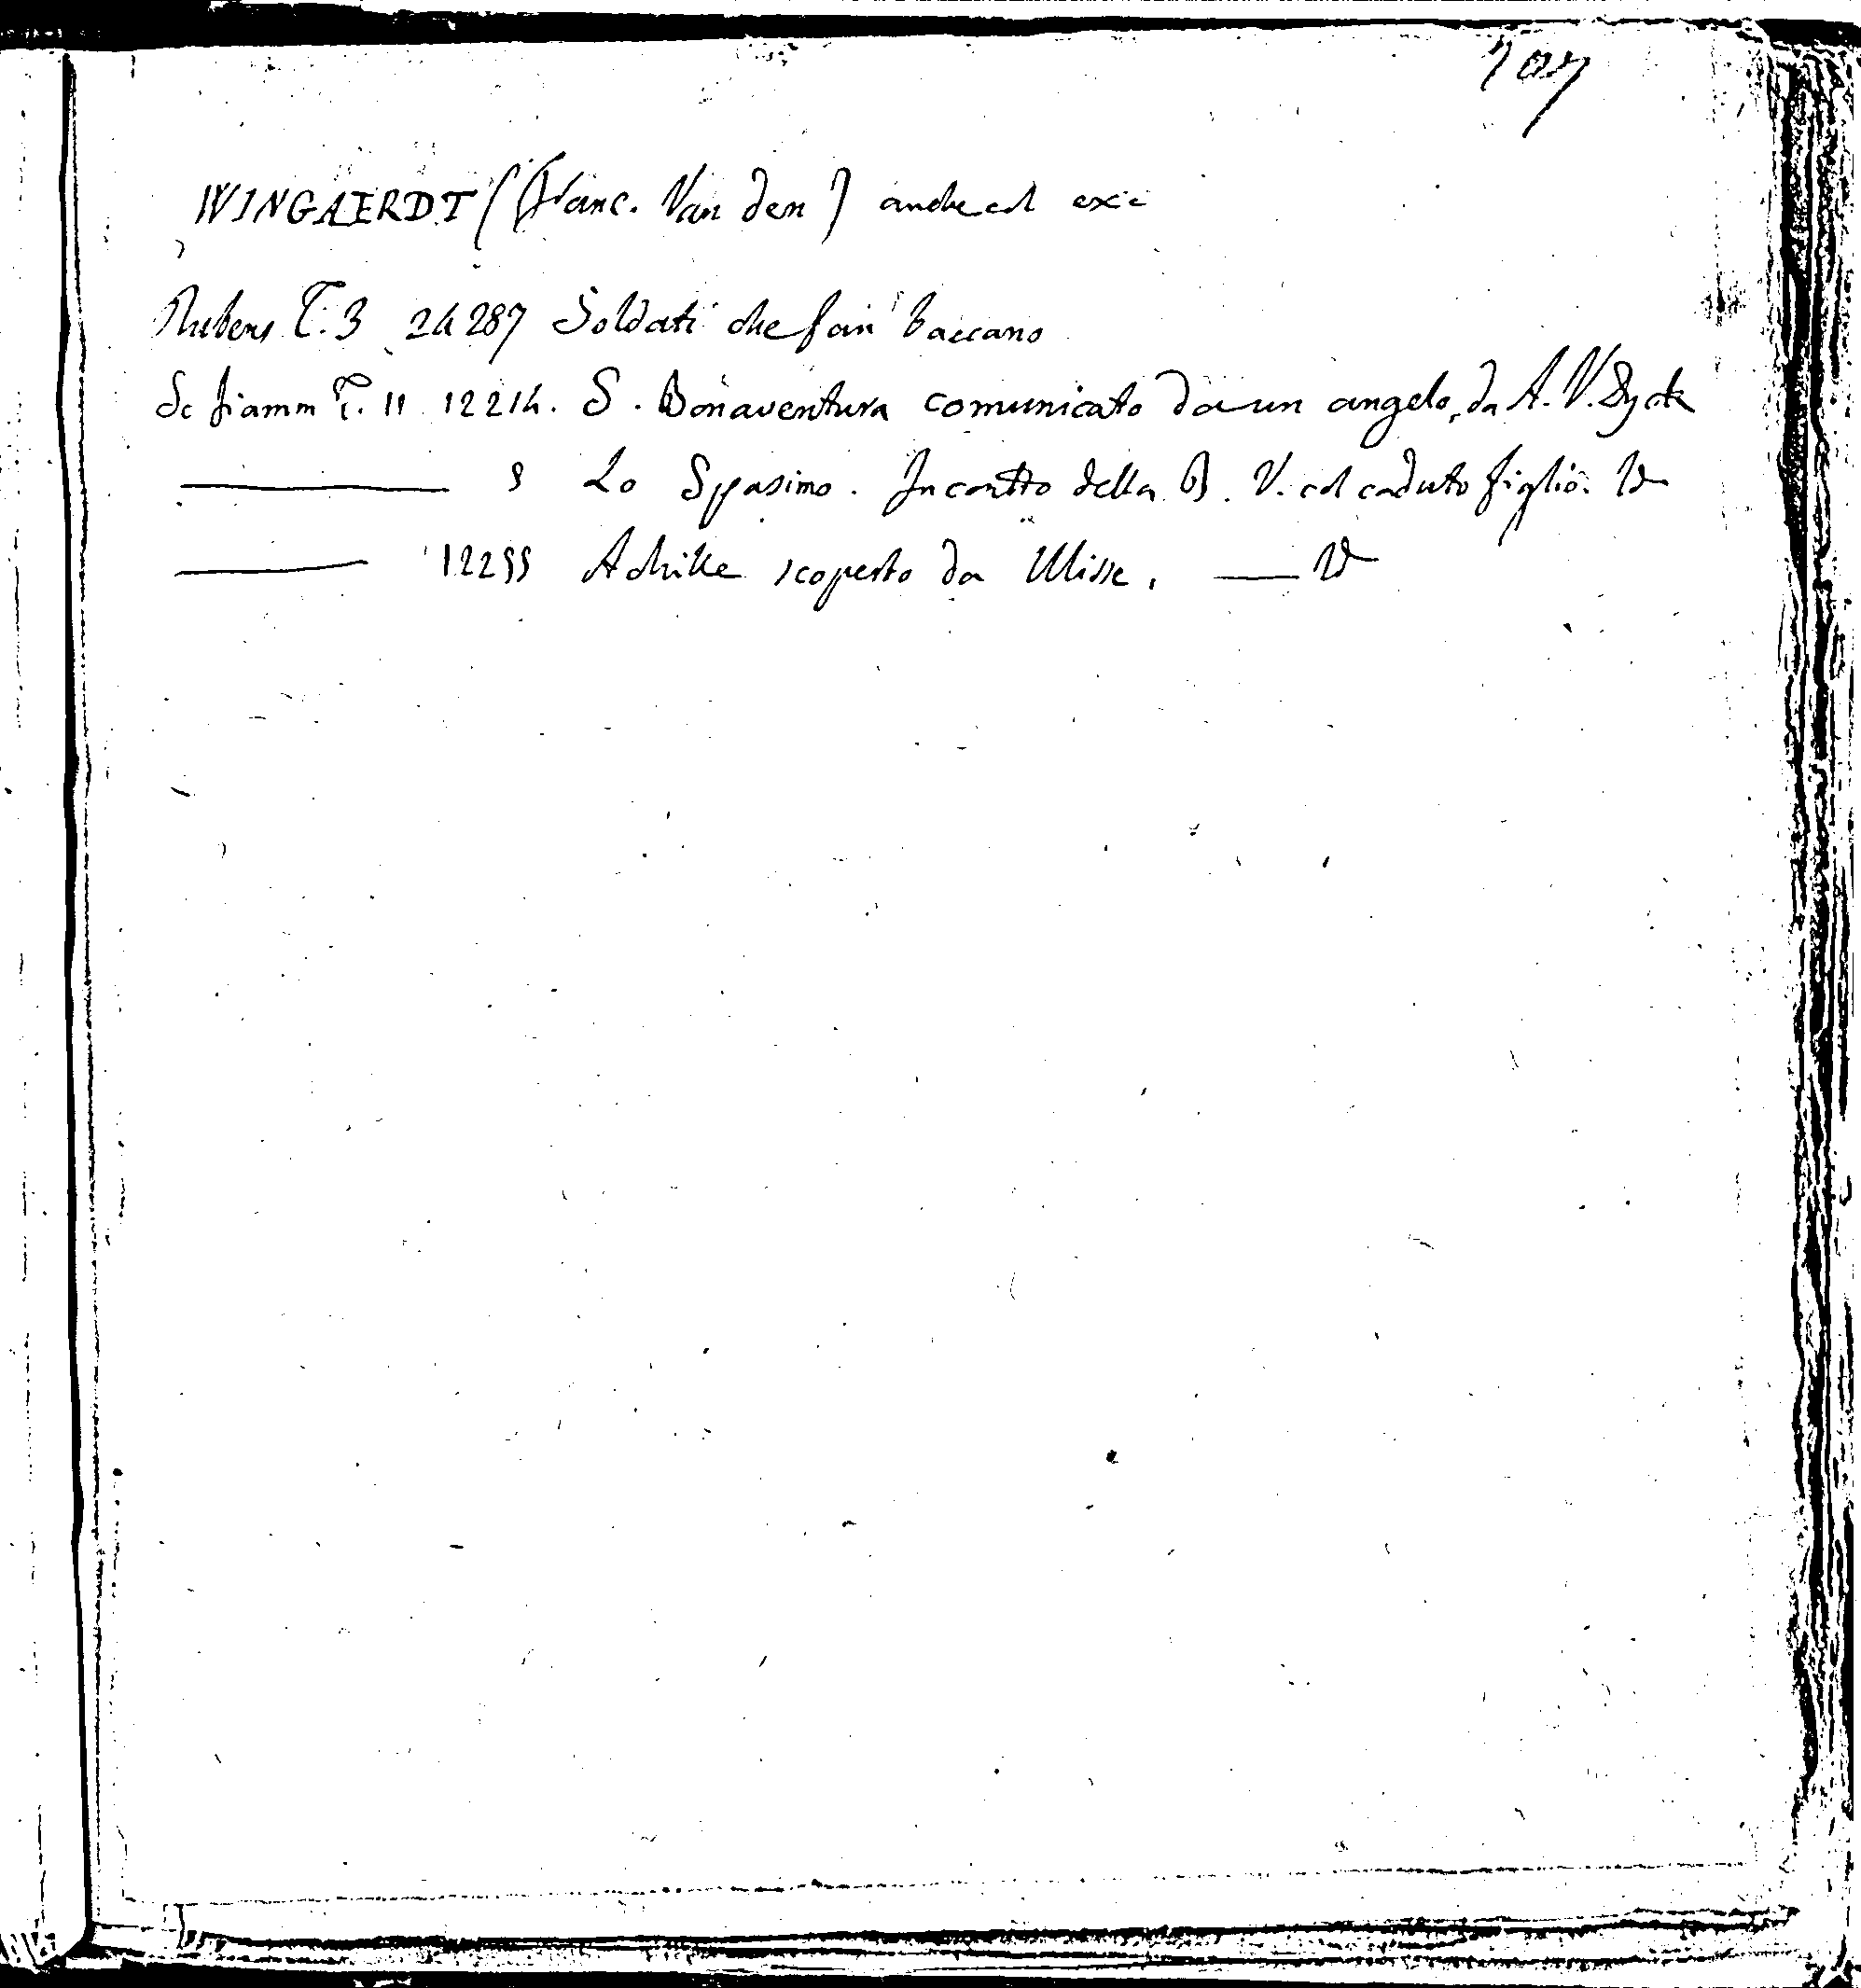 707
WINGAERDT (Franc. Van den) anche col ex:c
Rubens T. 3 24287 Soldati che fan baccano
Sc fiamm T. 11 12214. S. Bonaventura comunicato da un angelo, da A. V. Dyck
——— 5 Lo Spasimo. Incontro della B. V. col caduto figlio. Id
——— 12255 Achille scoperto da Ulisse. — Id